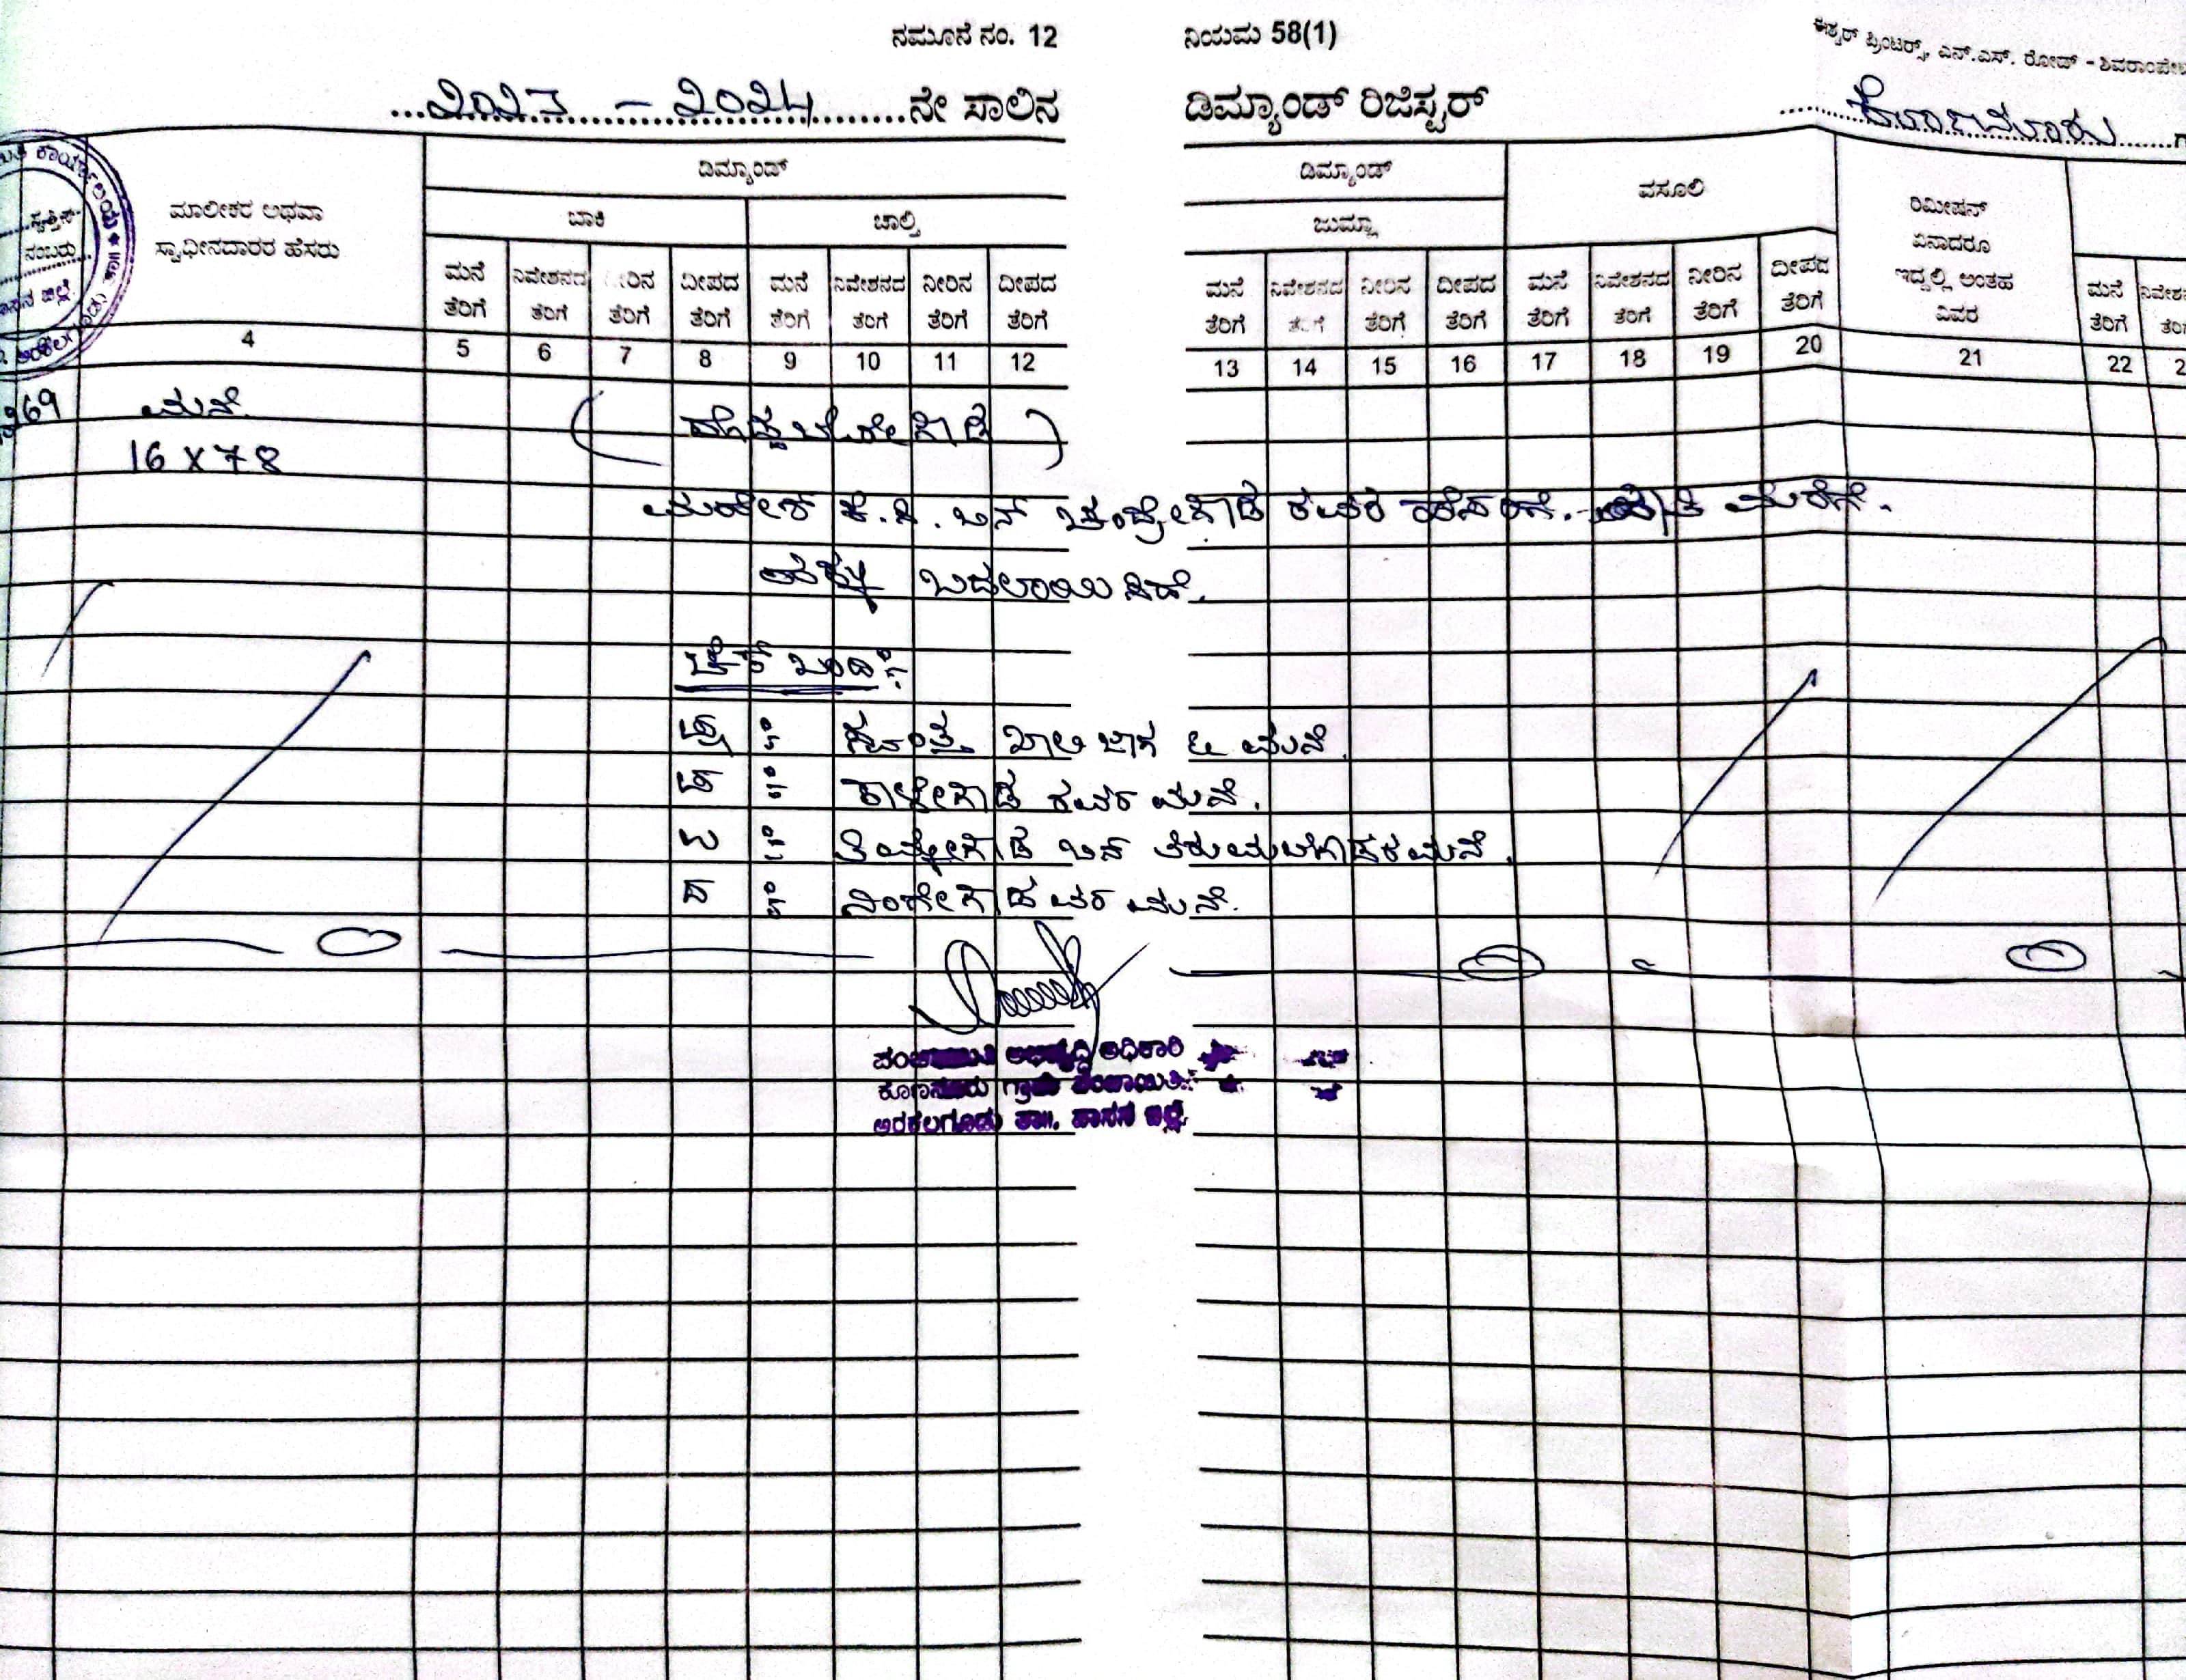 ನಮೂನೆ ನಂ. 12 ನಿಯಮ 58(1)
ಈಶ್ವರ್ ಪ್ರಿಂಟರ್ಸ್, ಎನ್.ಎಸ್. ರೋಡ್ - ಶಿವರಾಂಪೇಟ
...೨೦೨೩ – ೨೦೨೪...ನೇ ಸಾಲಿನ ಡಿಮ್ಯಾಂಡ್ ರಿಜಿಸ್ಟರ್ ...ಕೊಣನೂರು...
ಮಾಲೀಕರ ಅಥವಾ
ಸ್ವಾಧೀನದಾರರ ಹೆಸರು
ಡಿಮ್ಯಾಂಡ್ ಡಿಮ್ಯಾಂಡ್ ವಸೂಲಿ
ಬಾಕಿ ಚಾಲ್ತಿ ಜುಮ್ಲಾ
ರಿಮೀಷನ್
ಏನಾದರೂ
ಇದ್ದಲ್ಲಿ ಅಂತಹ
ವಿವರ
ಮನೆ ನಿವೇಶನದ ನೀರಿನ ದೀಪದ ಮನೆ ನಿವೇಶನದ ನೀರಿನ ದೀಪದ ಮನೆ ನಿವೇಶನದ ನೀರಿನ ದೀಪದ ಮನೆ ನಿವೇಶನದ ನೀರಿನ ದೀಪದ ಮನೆ
ತೆರಿಗೆ ತೆರಿಗೆ ತೆರಿಗೆ ತೆರಿಗೆ ತೆರಿಗೆ ತೆರಿಗೆ ತೆರಿಗೆ ತೆರಿಗೆ ತೆರಿಗೆ ತೆರಿಗೆ ತೆರಿಗೆ ತೆರಿಗೆ ತೆರಿಗೆ ತೆರಿಗೆ ತೆರಿಗೆ ತೆರಿಗೆ ತೆರಿಗೆ
4 5 6 7 8 9 10 11 12 13 14 15 16 17 18 19 20 21 22
269 ಮನೆ
16 X 78
ಬಿನ್ ಚಂದ್ರೇಗೌಡ ರವರ ಹೆಸರಿಗೆ.
ಬದಲಾಯಿಸಿದೆ.
ಚೆಕ್ ಬಂದಿ :
ಪೂ : ಖಾಲಿ ಜಾಗ & ಮನೆ.
ಪ : ಕಾಳೇಗೌಡ ರವರ ಮನೆ.
ಉ : ತಿಮ್ಮೇಗೌಡ ಬಿನ್
ದ : ನಿಂಗೇಗೌಡ ರವರ ಮನೆ.
ಪಂಚಾಯಿತಿ ಅಭಿವೃದ್ಧಿ ಅಧಿಕಾರಿ
ಕೊಣನೂರು ಗ್ರಾಮ ಪಂಚಾಯಿತಿ
ಅರಕಲಗೂಡು ತಾ||. ಹಾಸನ ಜಿಲ್ಲೆ.